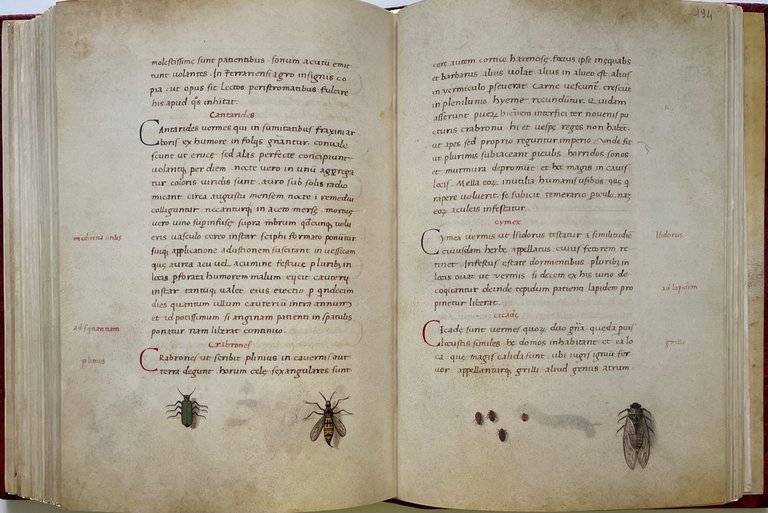 molestissime sunt patientibus. sonum acutu emit
tunt uolantes. In Terraniensi agro insignis co
pia. ut opus sit lectos peristromatibus fulcire
his apud qos inhitat.
Cantarides
Cantarides uermes qui in sumitatibus fraxini ar
boris ex humore in folijs gnantur. conuale
scunt ut eruce. sed alas perfecte concipiunt
uolantq per diem. nocte uero in unu aggrega
tur. coloris uiridis sunt. auro sub solis radio
micant. circa augusti mensem nocte i remedia
colliguntur. necanturq in aceto merse. mortuis
uero uino supinfuse supra mbrum quecunq uolu
eris uasculo cereo instar sciphi formato ponutur.
suaq applicatione adustionem suscitant in uessicam
que aurea acu uel acumine festuce pluribus in
locis pforata humorem malum eijcit cauterij
instar. tantuq ualet eius eiectio p qndecim
dies quantum ullum cauteriu intra annum
et id potissimum si anginam patienti in spatulis
ponatur. nam liberat continuo.
Crabrones
Crabrones ut scribit plinius in cauernis aut
terra degunt. horum cele sexangulares sunt
medicina oris
ad squinantiam
plinius
194
cere autem cortice harenose. foetus ipse inequalis
et barbarus. alius uolat. alius in alueo est. alius
in uermiculo pseuerat. Carne uescunt. crescut
in plenilunio. hyeme reconduntur. Quidam
asserunt puerum bienem interfici ter nouenis pu
cturis crabronu. hi et uespe reges non habet.
ut apes sed proprio reguntur imperio. unde fit
ut plurimis subiaceant piculis. horridos sonos
et murmura depromut et hec magis in cauis
locis. Mella eoz inutilia humanis usibus. que q
rapere uoluerit se subicit temerario piculo. nam
eoz aculeis infestatur.
cymex
Cymex uermis ut Isidorus testatur a similitudie
cuiusdam herbe appellatus. cuius fetorem re
tinet. Infestus estate dormientibus pluribus in
locis. ouat ut uermis. si decem ex his uino de
coquantur deinde tepidum patiens lapidem pro
pinetur liberat.
cicade
Cicade sunt uermes quoz duo gna. queda puis
locustis similes. hec domos inhabitant et ea lo
ca que magis calida sunt. ubi iugis igniu fer
uor. appellanturq grilli. aliud genus atrum.
Isidorus
ad lapidem
grilli